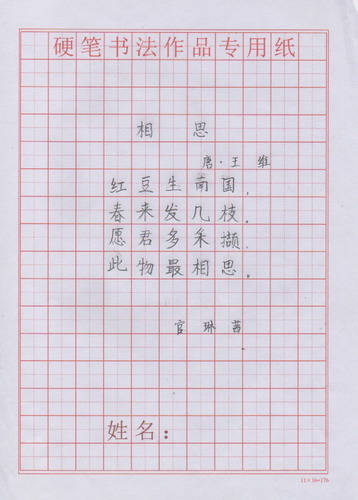 硬笔书法作品专用纸
相思
唐·王维
红豆生南国,
春来发几枝.
愿君多采撷.
此物最相思。
官琳茜
姓名:
11×16=176